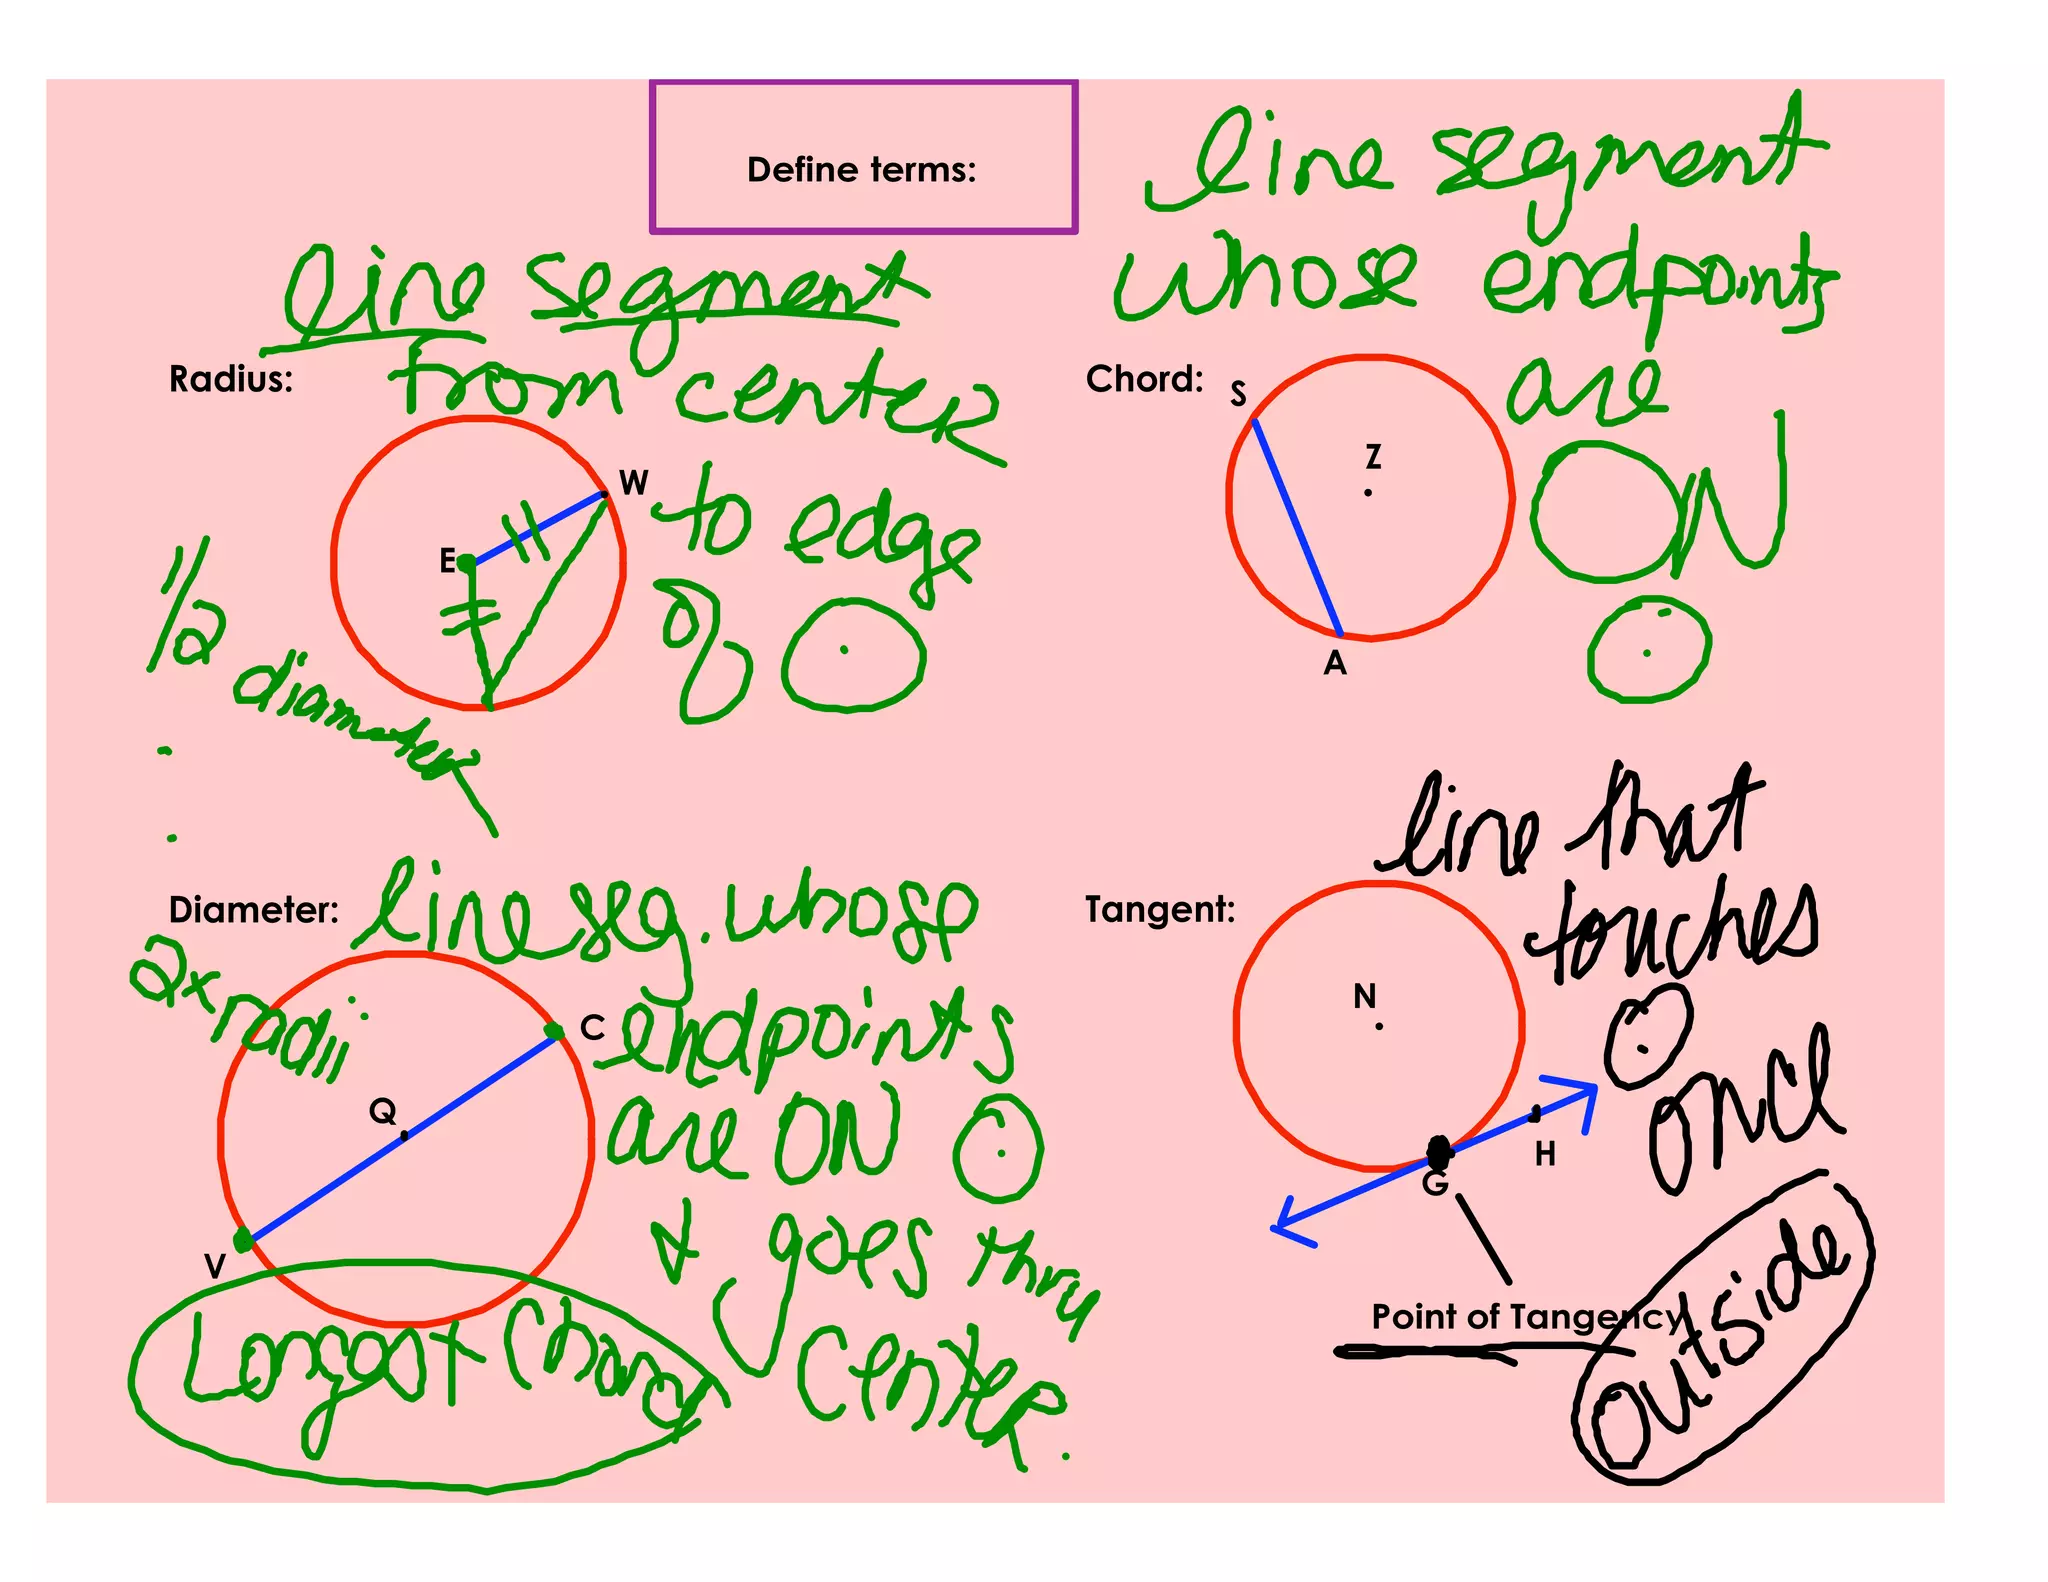 Define terms:
line segment
from center
to edge
of
Radius:
W
E
1/2
diameter
line segment
whose endpoints
are
ON
Chord:
S
Z
A
Diameter:
line seg. whose
endpoints
are ON
& goes thru
center.
2x radii
C
Q
V
Longest Chord
Tangent:
line that
touches
once
N
H
G
Point of Tangency
outside